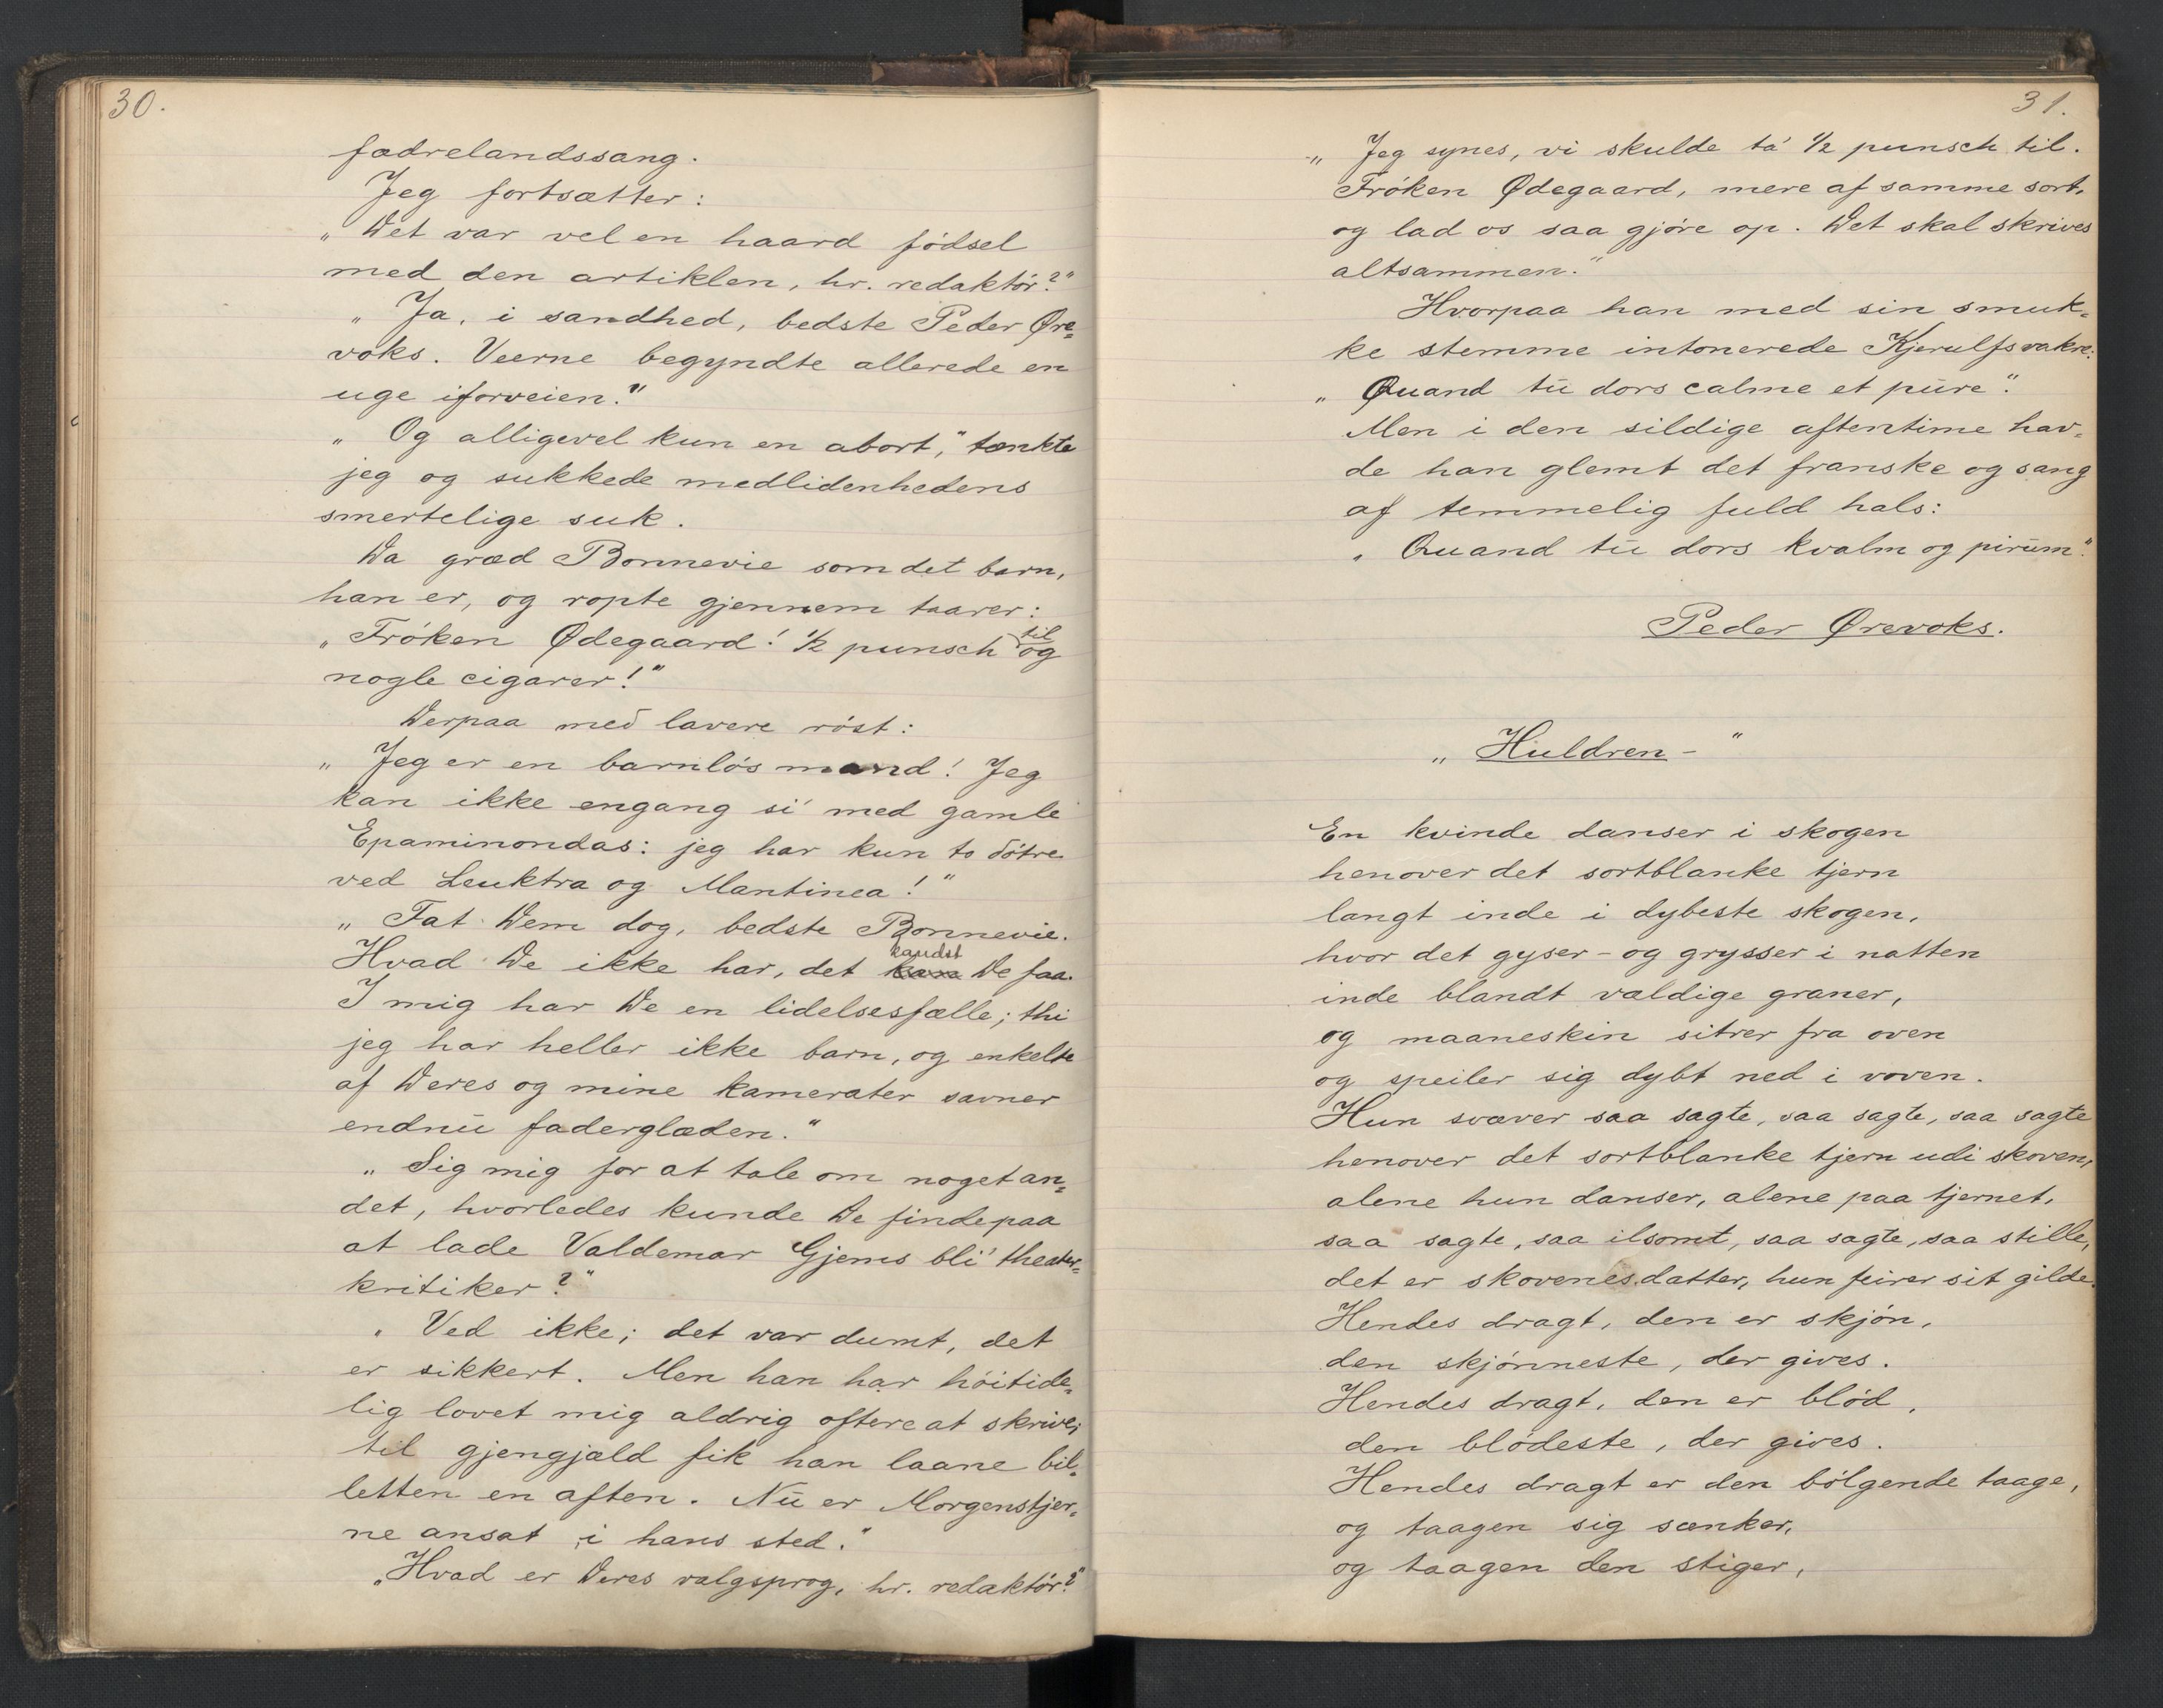 30.
fædrelandssang.
Jeg fortsætter:
„Det var vel en haard fødsel
med den artiklen, hr. redaktør?"
„Ja, i sandhed, bedste Peder Øre=
voks. Veerne begyndte allerede en
uge iforveien."
„Og alligevel kun en abort," tænkte
jeg og sukkede medlidenhedens
smertelige suk.
Da græd Bonnevie som det barn,
han er, og ropte gjennem taarer:
„Frøken Ødegaard! ½ punsch til og
nogle cigarer!"
Derpaa med lavere røst:
„Jeg er en barnløs mand! Jeg
kan ikke engang si' med gamle
Epaminondas: jeg har kun to døtre
ved Leuktra og Mantinea!"
„Fat Dem dog, bedste Bonnevie.
Hvad De ikke har, det kandst De faa.
I mig har De en lidelsesfælle; thi
jeg har heller ikke barn, og enkelte
af Deres og mine kamerater savner
endnu faderglæden."
„Sig mig for at tale om noget an=
det, hvorledes kunde De finde paa
at lade Valdemar Gjems bli' theater=
kritiker?"
„Ved ikke; det var dumt, det
er sikkert. Men han har høitide=
lig lovet mig aldrig oftere at skrive;
til gjengjæld fik han laane bil=
letten en aften. Nu er Morgenstjer=
ne ansat i hans sted."
„Hvad er Deres valgsprog, hr. redaktør?"
31.
„Jeg synes, vi skulde ta' ½ punsch til.
Frøken Ødegaard, mere af samme sort,
og lad os saa gjøre op. Det skal skrives
altsammen."
Hvorpaa han med sin smuk=
ke stemme intonerede Kjerulfs vakre:
„Quand tu dors calme et pure".
Men i den sildige aftentime hav=
de han glemt det franske og sang
af temmelig fuld hals:
„Quand tu dors kvalm og pirum".
Peder Ørevoks.
„Huldren-"
En kvinde danser i skogen
henover det sortblanke tjern
langt inde i dybeste skogen,
hvor det gyser- og grysser i natten
inde blandt vældige graner,
og maaneskin sitrer fra oven
og speiler sig dybt ned i voven.
Hun svæver saa sagte, saa sagte, saa sagte
henover det sortblanke tjern udi skoven,
alene hun danser, alene paa tjernet,
saa sagte, saa ilsomt, saa sagte, saa stille,
det er skovenes datter, hun feirer sit gilde.
Hendes dragt, den er skjøn,
den skjønneste, der gives.
Hendes dragt, den er blød,
den blødeste, der gives.
Hendes dragt er den bølgende taage,
og taagen sig sænker,
og taagen den stiger,